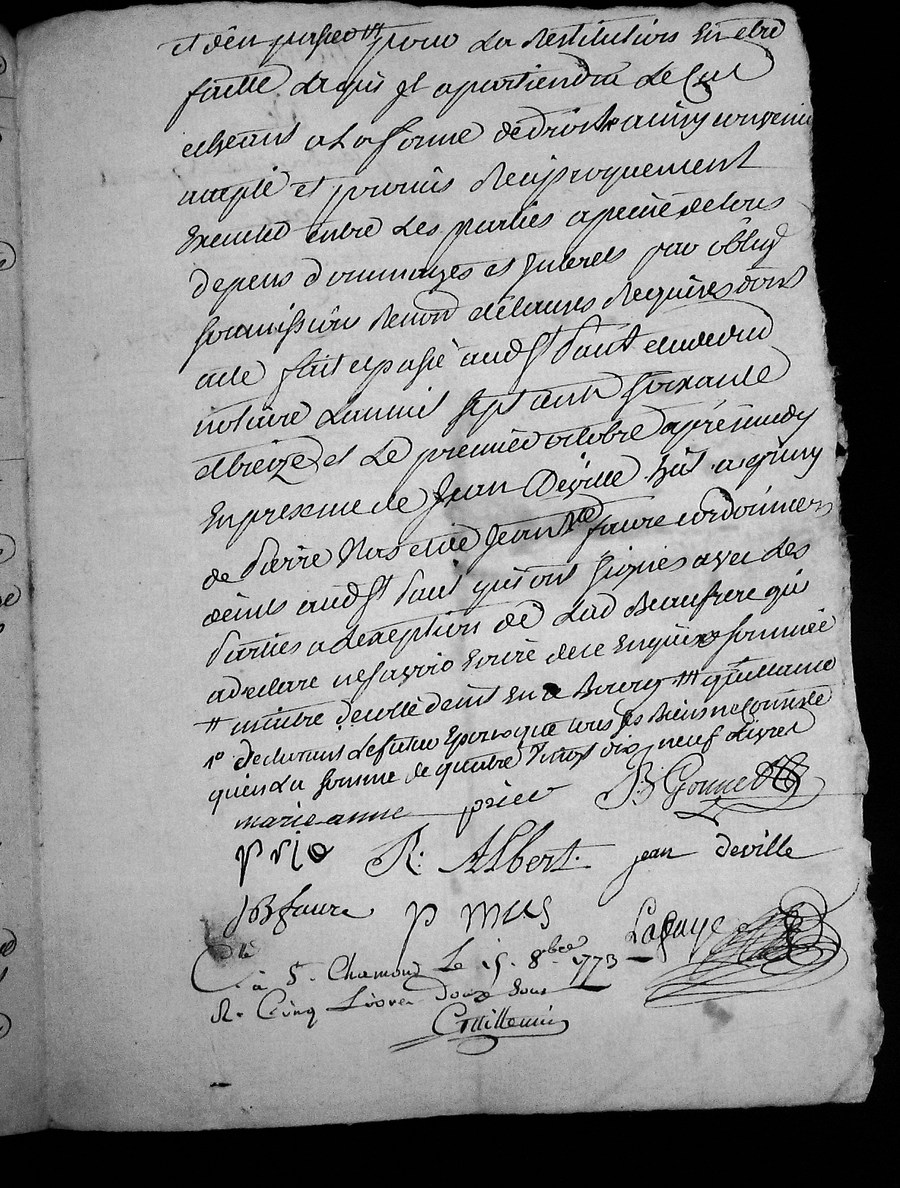 et d'en pour la restitution En etre
faitte a qui Il apartiendra le Cas
echeant a la forme de droit ainsy convenu
accepté et promis Reciproquement
Executer entre Les parties a peine de tous
depens dommages et Interets par oblig
Soumission Renon et clauses Requises dont
acte fait et passé aud St Paul etude dud
notaire L'an mil Sept cent soixante
et treize et Le premier octobre après midy
En presence de Jean Deville
de Pierre Mas et de Jean Bte faure cordonniers
dem^ts aud St Paul qui ont Signés avec Les
Parties a L'exception de Lad Beaufrere qui
a declaré ne savoir Ecrire de ce Enquise et sommée
# maitre demt En ce Bourg ## Guillaume
1° declarant Le futur Epoux que tous ses Biens ne consiste
qu'en La somme de quatre vingt dix neuf Livres
marie anne prier B Gonnet
prio R. Albert. jean deville
JB faure p mas Lafaye
Clle à St. Chamond Le 15. 8bre 1773
R. Cinq Livres Douze Sous
Guillemin